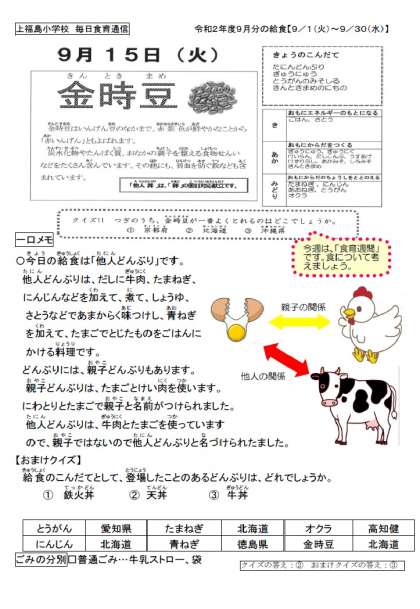 上福島小学校 毎日食育通信
令和2年度9月分の給食【9／1(火)～9／30(水)】
9月15日(火)
きんときまめ
金時豆
金時豆はいんげん豆のなかまで、赤紫色が鮮やかなことから
「赤いんげん」ともよばれます。
炭水化物やたんぱく質、おなかの調子を整える食物せんい
などをたくさん含んでいます。その他にも、貧血を防ぐ鉄なども含
まれています。
きょうのこんだて
たにんどんぶり
ぎゅうにゅう
とうがんのみそしる
きんときまめのにもの
おもにエネルギーのもとになる
き
ごはん、さとう
おもにからだをつくる
あか
おもにからだのちょうしをととのえる
みどり
たまねぎ、にんじん
あおねぎ、とうがん
オクラ
クイズ!! つぎのうち、金時豆が一番よくとれるのはどこでしょうか。
① 京都府 ② 北海道 ③ 沖縄県
一口メモ
○今日の給食は「他人どんぶり」です。
他人どんぶりは、だしに牛肉、たまねぎ、
にんじんなどを加えて、煮て、しょうゆ、
さとうなどであまからく味つけし、青ねぎ
を加えて、たまごでとじたものをごはんに
かける料理です。
どんぶりには、親子どんぶりもあります。
親子どんぶりは、たまごとけい肉を使います。
にわとりとたまごで親子と名前がつけられました。
他人どんぶりは、牛肉とたまごを使っています
ので、親子ではないので他人どんぶりと名づけられました。
今週は、「食育週間」
です。食について考
えましょう。
親子の関係
他人の関係
【おまけクイズ】
給食のこんだてとして、登場したことのあるどんぶりは、どれでしょうか。
① 鉄火丼 ② 天丼 ③ 牛丼
とうがん 愛知県 たまねぎ 北海道 オクラ 高知健
にんじん 北海道 青ねぎ 徳島県 金時豆 北海道
ごみの分別 □普通ごみ…牛乳ストロー、袋
クイズの答え：② おまけクイズの答え：③